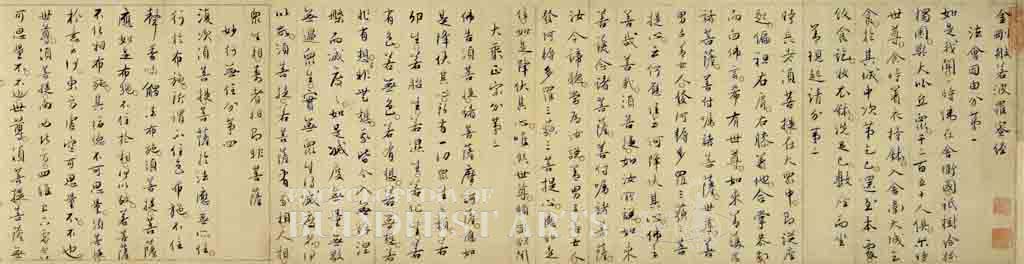 金剛般若波羅蜜經
法會因由分第一
如是我聞一時佛在舍衛國祇樹給孤
獨園與大比丘眾千二百五十人俱爾時
世尊食時著衣持鉢入舍衛大城乞
食於其城中次第乞已還至本處
飯食訖收衣鉢洗足已敷座而坐
善現起請分第二
時長老須菩提在大眾中即從座
起偏袒右肩右膝著地合掌恭敬
而白佛言希有世尊如來善護念
諸菩薩善付囑諸菩薩世尊善
男子善女人發阿耨多羅三藐三菩
提心云何應住云何降伏其心佛言
善哉善哉須菩提如汝所說如來
善護念諸菩薩善付囑諸菩薩
汝今諦聽當為汝說善男子善女人
發阿耨多羅三藐三菩提心應如是
住如是降伏其心唯然世尊願樂欲聞
大乘正宗分第三
佛告須菩提諸菩薩摩訶薩應如
是降伏其心所有一切眾生之類若
卵生若胎生若濕生若化生若
有色若無色若有想若無想若
非有想非無想我皆令入無餘涅
槃而滅度之如是滅度無量無數
無邊眾生實無眾生得滅度者何
以故須菩提若菩薩有我相人相
眾生相壽者相即非菩薩
妙行無住分第四
復次須菩提菩薩於法應無所住
行於布施所謂不住色布施不住
聲香味觸法布施須菩提菩薩
應如是布施不住於相何以故若菩薩
不住相布施其福德不可思量須菩提
於意云何東方虛空可思量不不也
世尊須菩提南西北方四維上下虛空
可思量不不也世尊須菩提菩薩無
ENCYCLOPEDIA OF
BUDDHIST ARTS